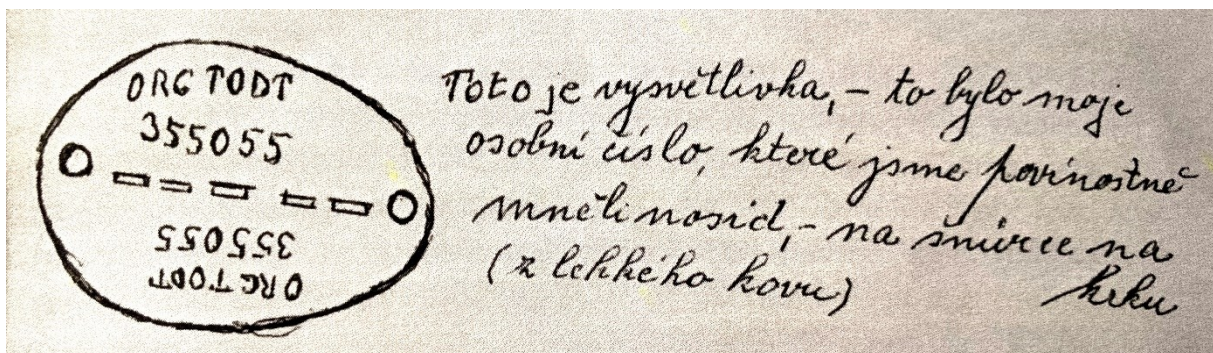 ORG TODT
355055
355055
ORG TODT
Toto je vysvětlivka, – to bylo moje
osobní číslo, které jsme povinostně
mněli nosid, – na šnúrce na
krku
(z lehkého kovu)